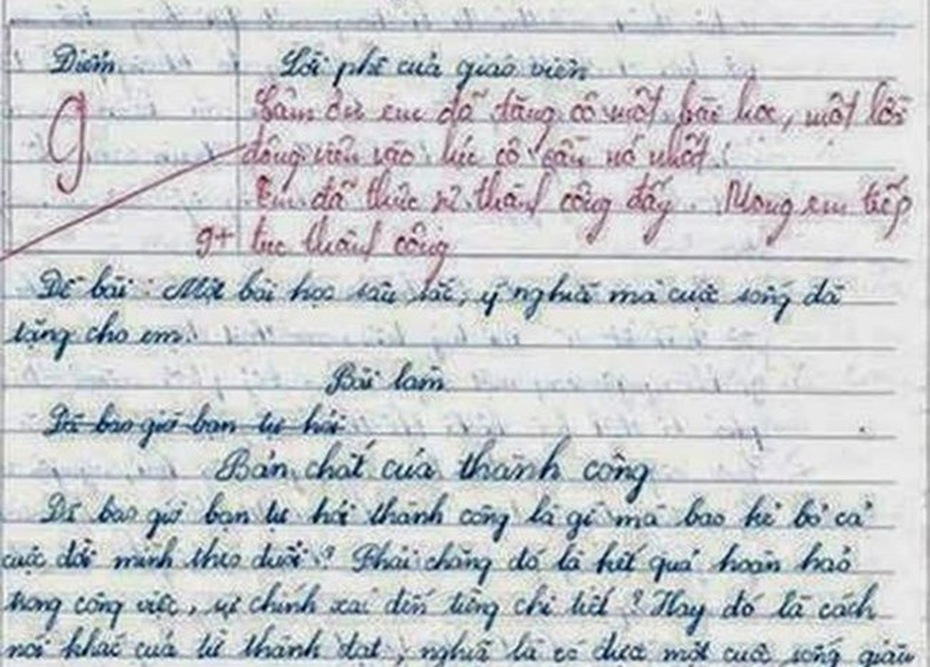 Điểm
Lời phê của giáo viên
9
Cảm ơn em đã tặng cô một bài học, một lời
động viên vào lúc cô cần nó nhất.
Em đã thực sự thành công đấy. Mong em tiếp
9+ tục thành công
Đề bài: Một bài học sâu sắc, ý nghĩa mà cuộc sống đã
tặng cho em.
Bài làm
Đã bao giờ bạn tự hỏi
Bản chất của thành công
Đã bao giờ bạn tự hỏi thành công là gì mà bao kẻ bỏ cả
cuộc đời mình theo đuổi? Phải chăng đó là kết quả hoàn hảo
trong công việc, sự chính xác đến từng chi tiết? Hay đó là cách
nói khác của từ thành đạt, nghĩa là có được một cuộc sống giàu